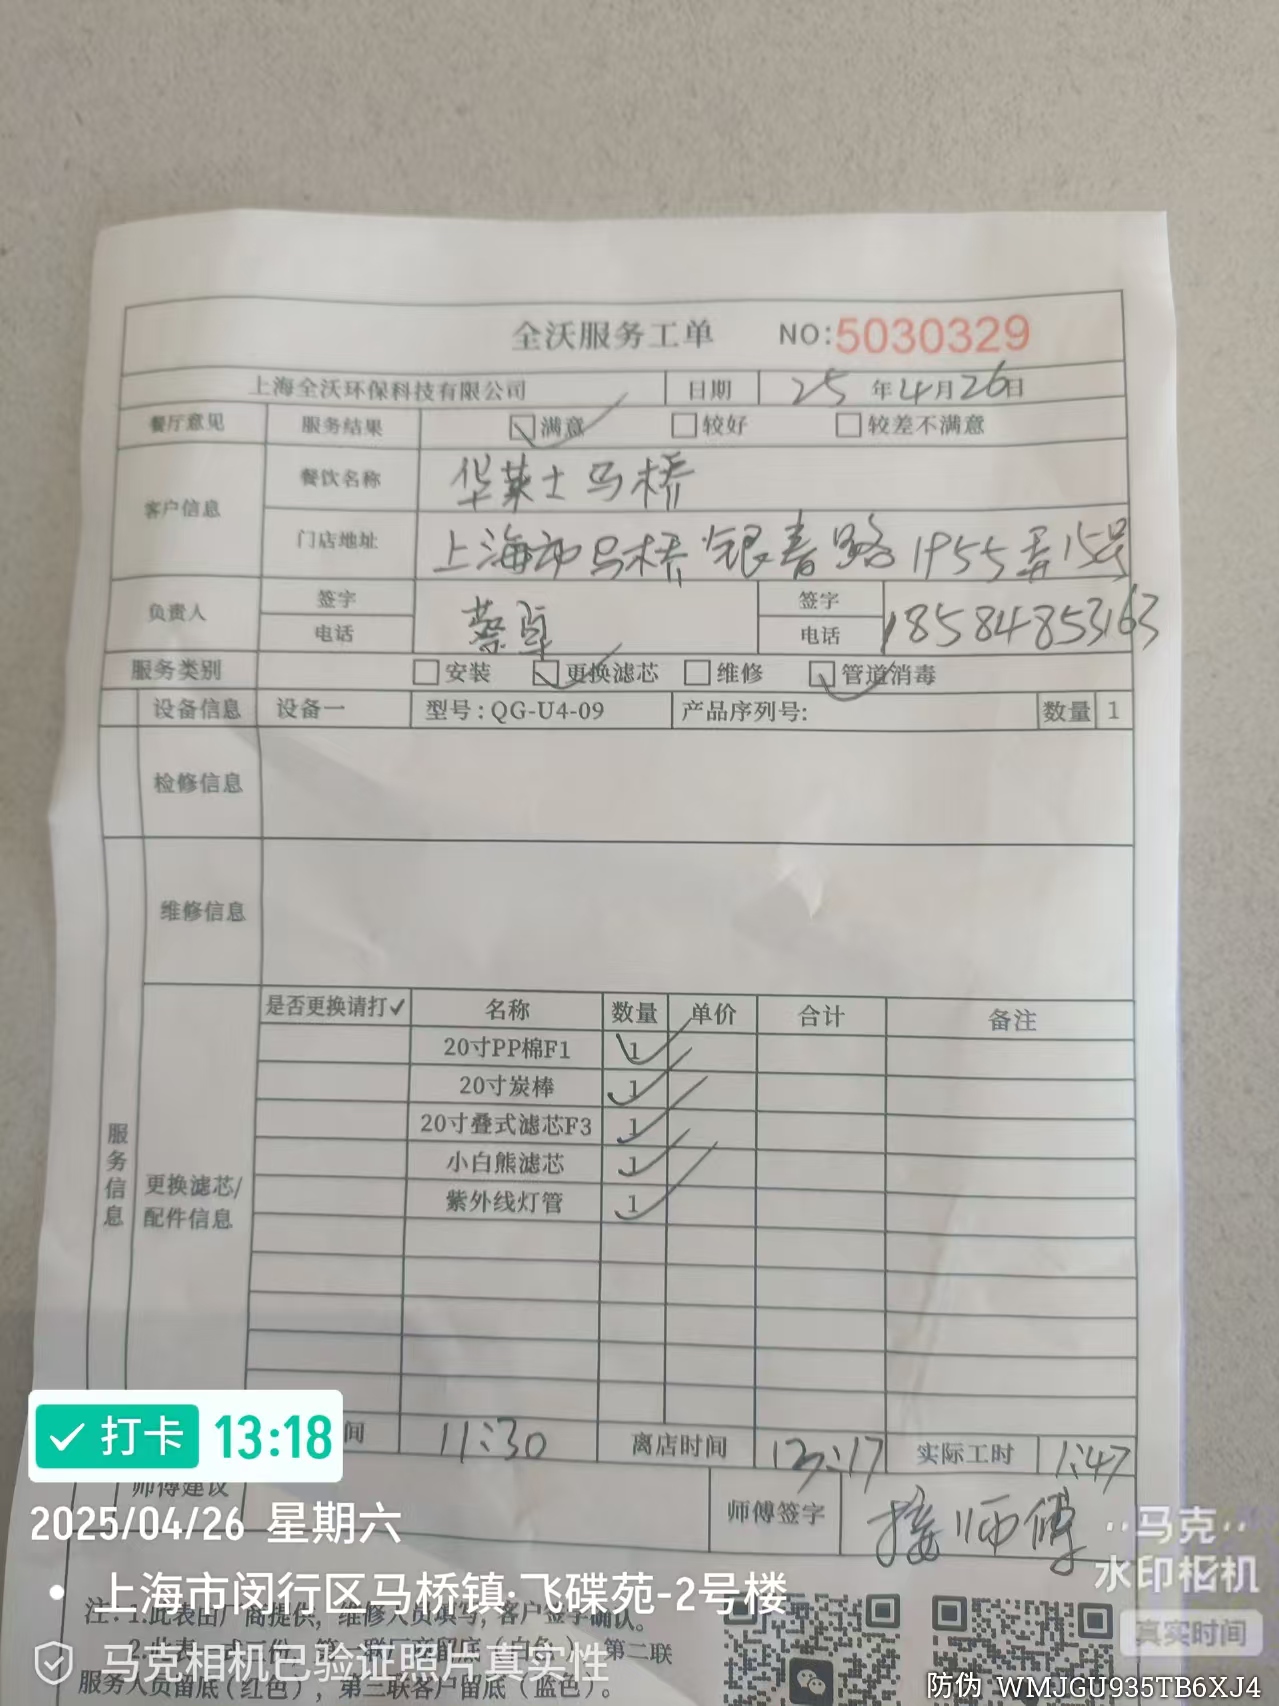 全沃服务工单 NO:5030329
上海全沃环保科技有限公司 日期 25年4月26日
餐厅意见 服务结果 满意 较好 较差不满意
客户信息 餐饮名称 华莱士马桥
门店地址 上海市马桥银春路1955弄15号
负责人 签字 签字
电话 电话 18584853163
服务类别 安装 更换滤芯 维修 管道消毒
设备信息 设备一 型号:QG-U4-09 产品序列号: 数量 1
检修信息
维修信息
服务信息
更换滤芯/
配件信息
是否更换请打✓ 名称 数量 单价 合计 备注
20寸PP棉F1 1
20寸炭棒 1
20寸叠式滤芯F3 1
小白熊滤芯 1
紫外线灯管 1
间 11:30 离店时间 13:17 实际工时 1:47
师傅建议 师傅签字 师傅
注:1.此表由厂商提供,维修人员填写,客户签字确认。
第二联
服务人员留底(红色),第三联客户留底(蓝色)。
打卡 13:18
2025/04/26 星期六
上海市闵行区马桥镇·飞碟苑-2号楼
马克相机已验证照片真实性
马克
水印相机
真实时间
防伪 WMJGU935TB6XJ4